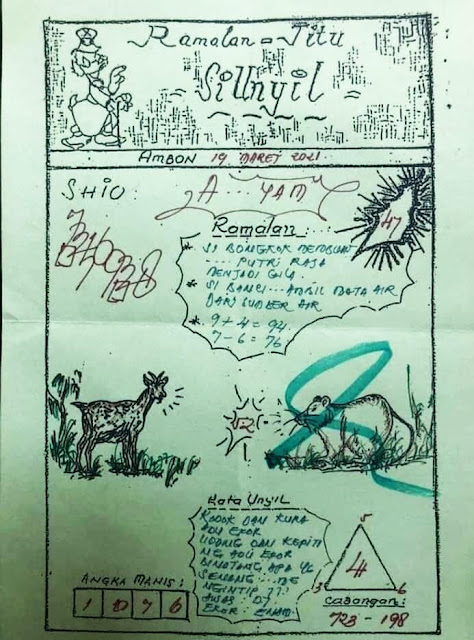 Ramalan = Jitu
Si Unyil
AMBON 19 MARET 2021
SHIO:
A... YAM
47
Ramalan:
* SI BONGKOK MEMBUAT
.... PUTRI RAJA
MENJADI GILA.
* SI BANCI...AMBIL MATA AIR
DARI SUMBER AIR
* 9 + 4 = 94.
7 - 6 = 76
52
Kata Unyil
KODOK DAN KURA
ADU EKOR
UDANG DAN KEPITI
NG ADU EKOR
BINATANG APA YG
SENANG...ME
NGINTIP ??
AWAS : 07
EKOR : ENAM.
5
4
3 6
ANGKA MANIS:
1 0 7 6
Cabangan:
723 - 198